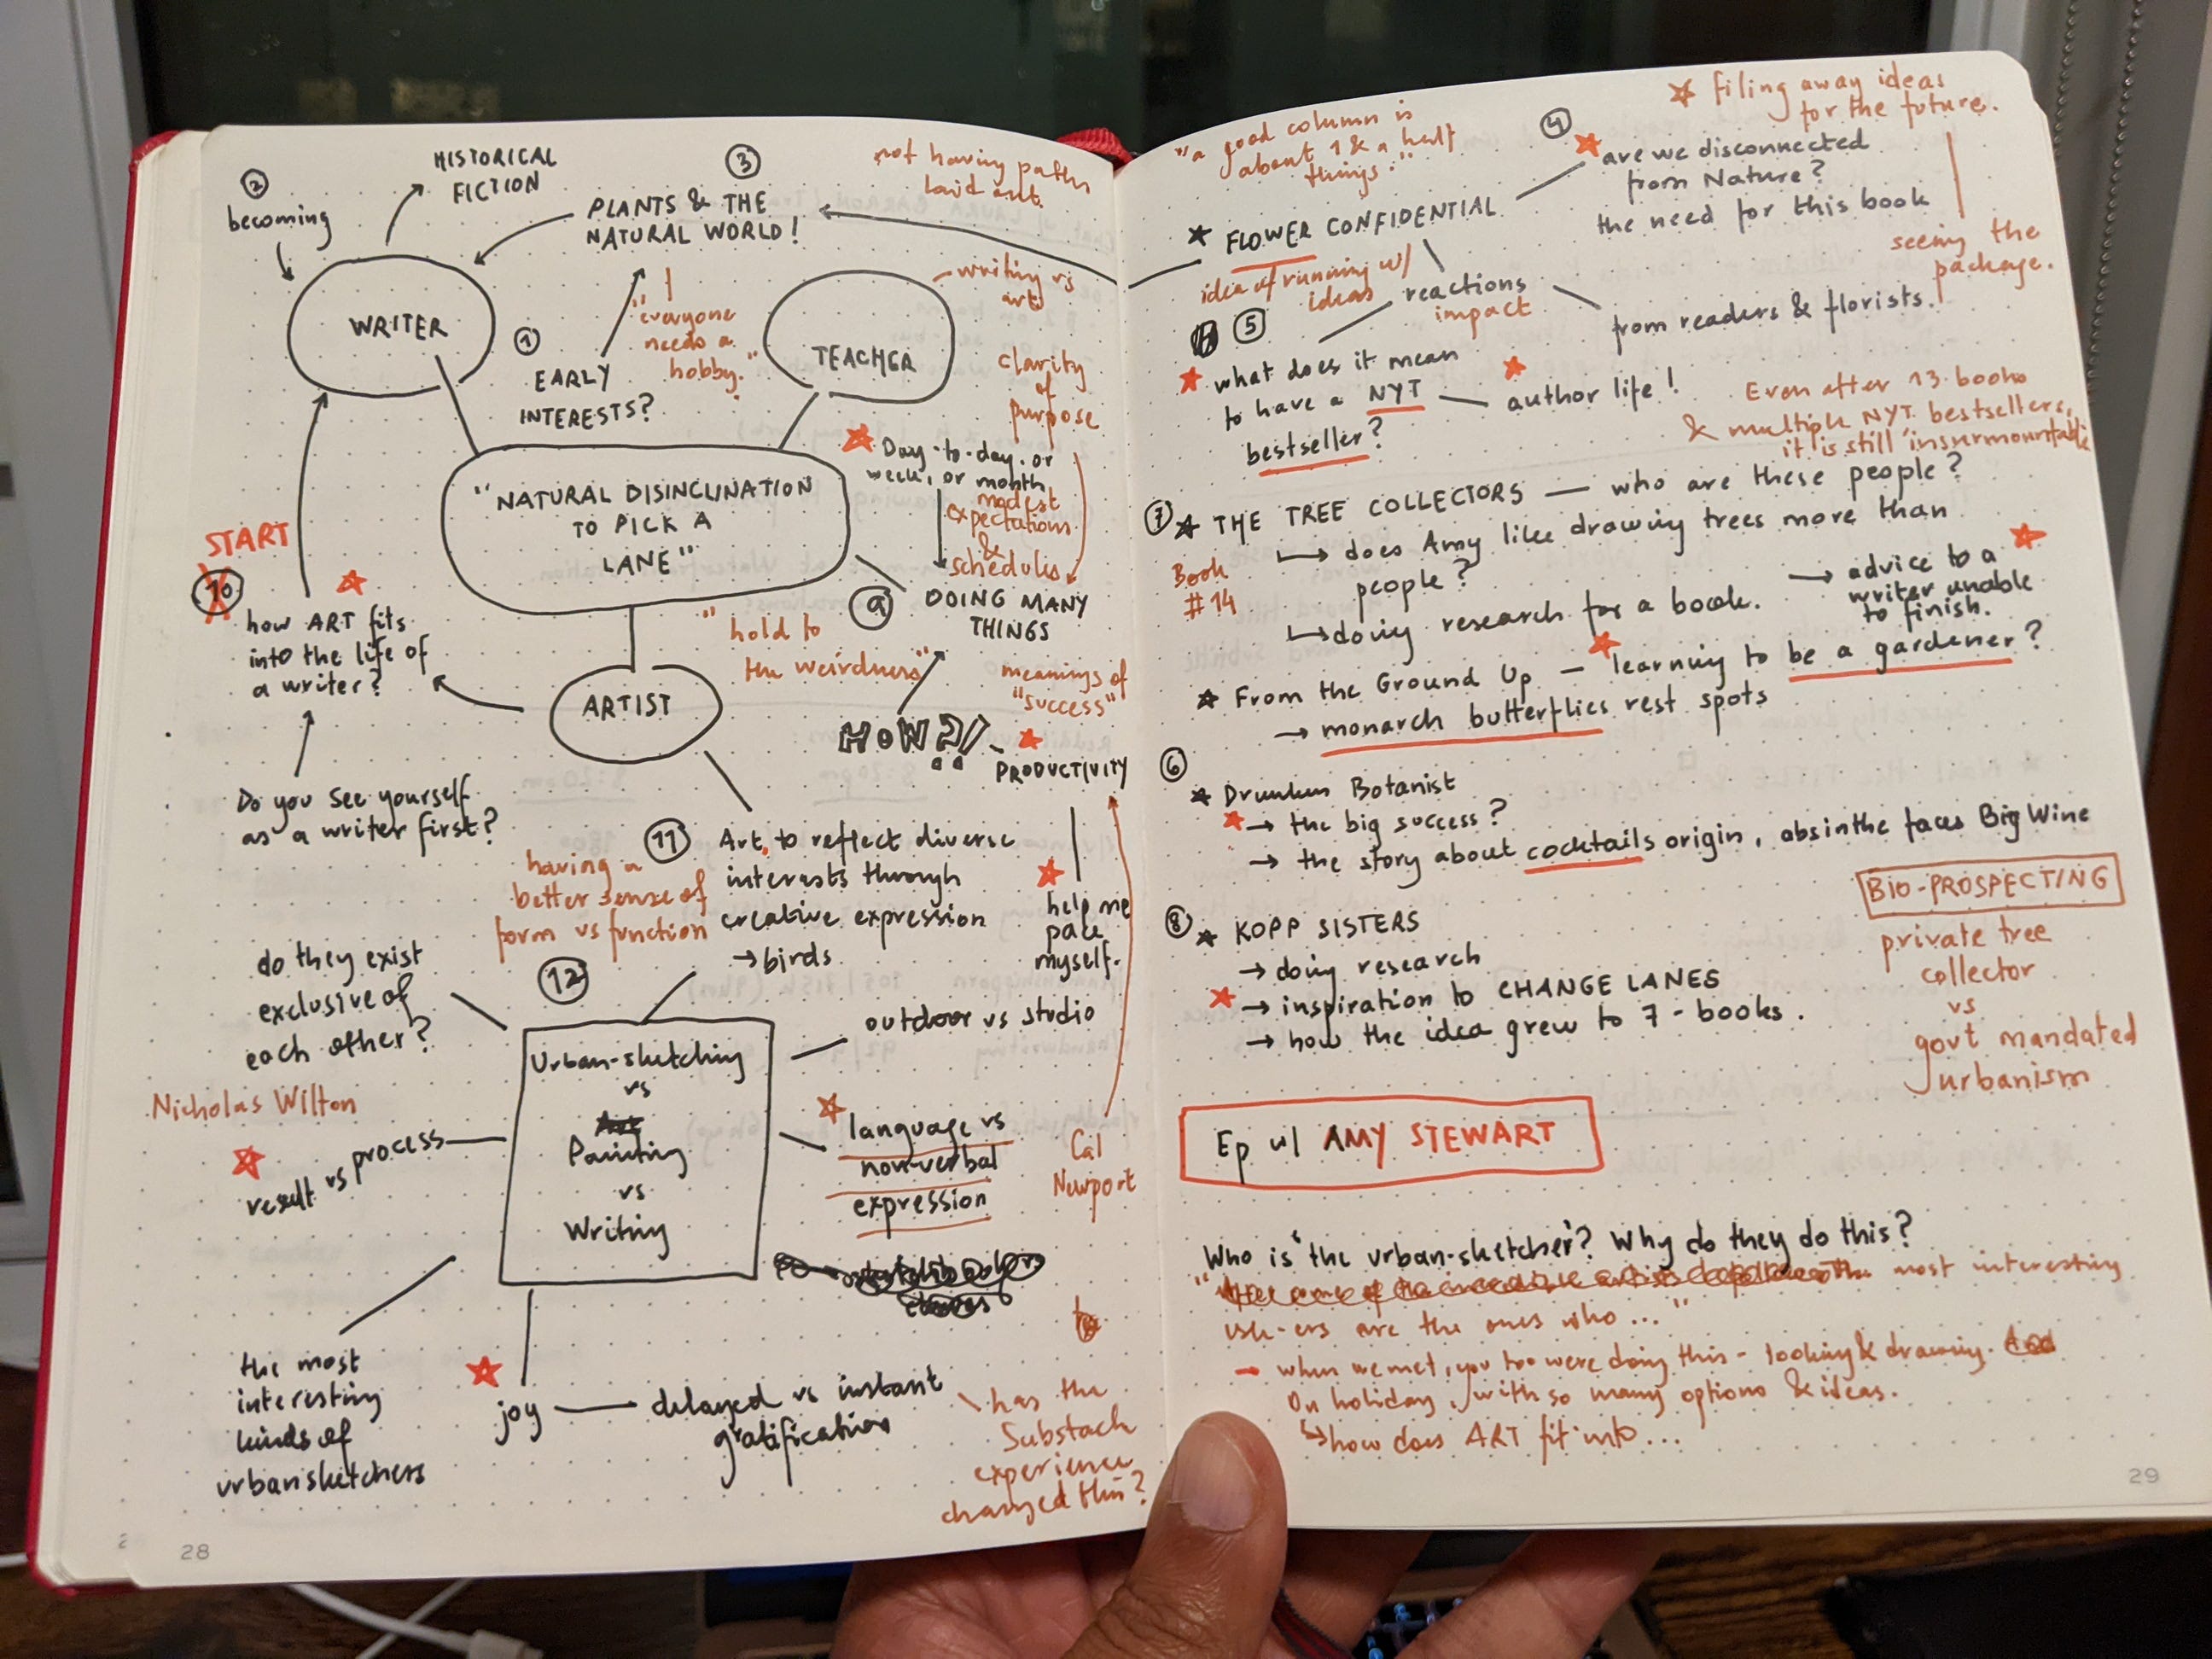 ②
becoming
HISTORICAL
FICTION
③
PLANTS & THE
NATURAL WORLD!
not having paths
laid out.
WRITER
①
EARLY
INTERESTS?
"everyone
needs a
hobby."
TEACHER
writing vs
art
clarity
of
purpose
Day-to-day. or
week, or month
modest
expectations
&
schedules
"NATURAL DISINCLINATION
TO PICK A
LANE"
START
10
how ART fits
into the life of
a writer?
⑨
DOING MANY
THINGS
"hold to
the weirdness"
ARTIST
meanings of
"success"
HOW?!
PRODUCTIVITY
Do you see yourself
as a writer first?
11
Art, to reflect diverse
interests through
creative expression
→ birds.
having a
better sense of
form vs function
help me
pace
myself.
do they exist
exclusive of
each other?
12
Urban-sketching
vs
Painting
vs
Writing
outdoor vs studio
Nicholas Wilton
result vs process
language vs
non-verbal
expression
Cal
Newport
the most
interesting
kinds of
urbansketchers
joy
delayed vs instant
gratification
has the
Substack
experience
changed this?
28
"a good column is
about 1 & a half
things."
④
filing away ideas
for the future.
are we disconnected
from Nature?
the need for this book
FLOWER CONFIDENTIAL
seeing the
package.
idea of running w/
ideas
reactions
impact
from readers & florists.
⑤
what does it mean
to have a NYT
bestseller?
author life!
Even after 13 books
& multiple NYT bestsellers,
it is still insurmountable
⑦
THE TREE COLLECTORS — who are these people?
→ does Amy like drawing trees more than
people?
Book
#14
→ doing research for a book.
→ advice to a
writer unable
to finish.
From the Ground Up — learning to be a gardener?
→ monarch butterflies rest spots
⑥
Drunken Botanist
→ the big success?
→ the story about cocktails origin, absinthe faces Big Wine
BIO-PROSPECTING
private tree
collector
vs
govt mandated
urbanism
⑧
KOPP SISTERS
→ doing research
→ inspiration to CHANGE LANES
→ how the idea grew to 7-books.
Ep w/ AMY STEWART
Who is the urban-sketcher? Why do they do this?
"The most interesting
usk-ers are the ones who..."
- when we met, you too were doing this - looking & drawing.
On holiday, with so many options & ideas.
↳ how does ART fit into...
29